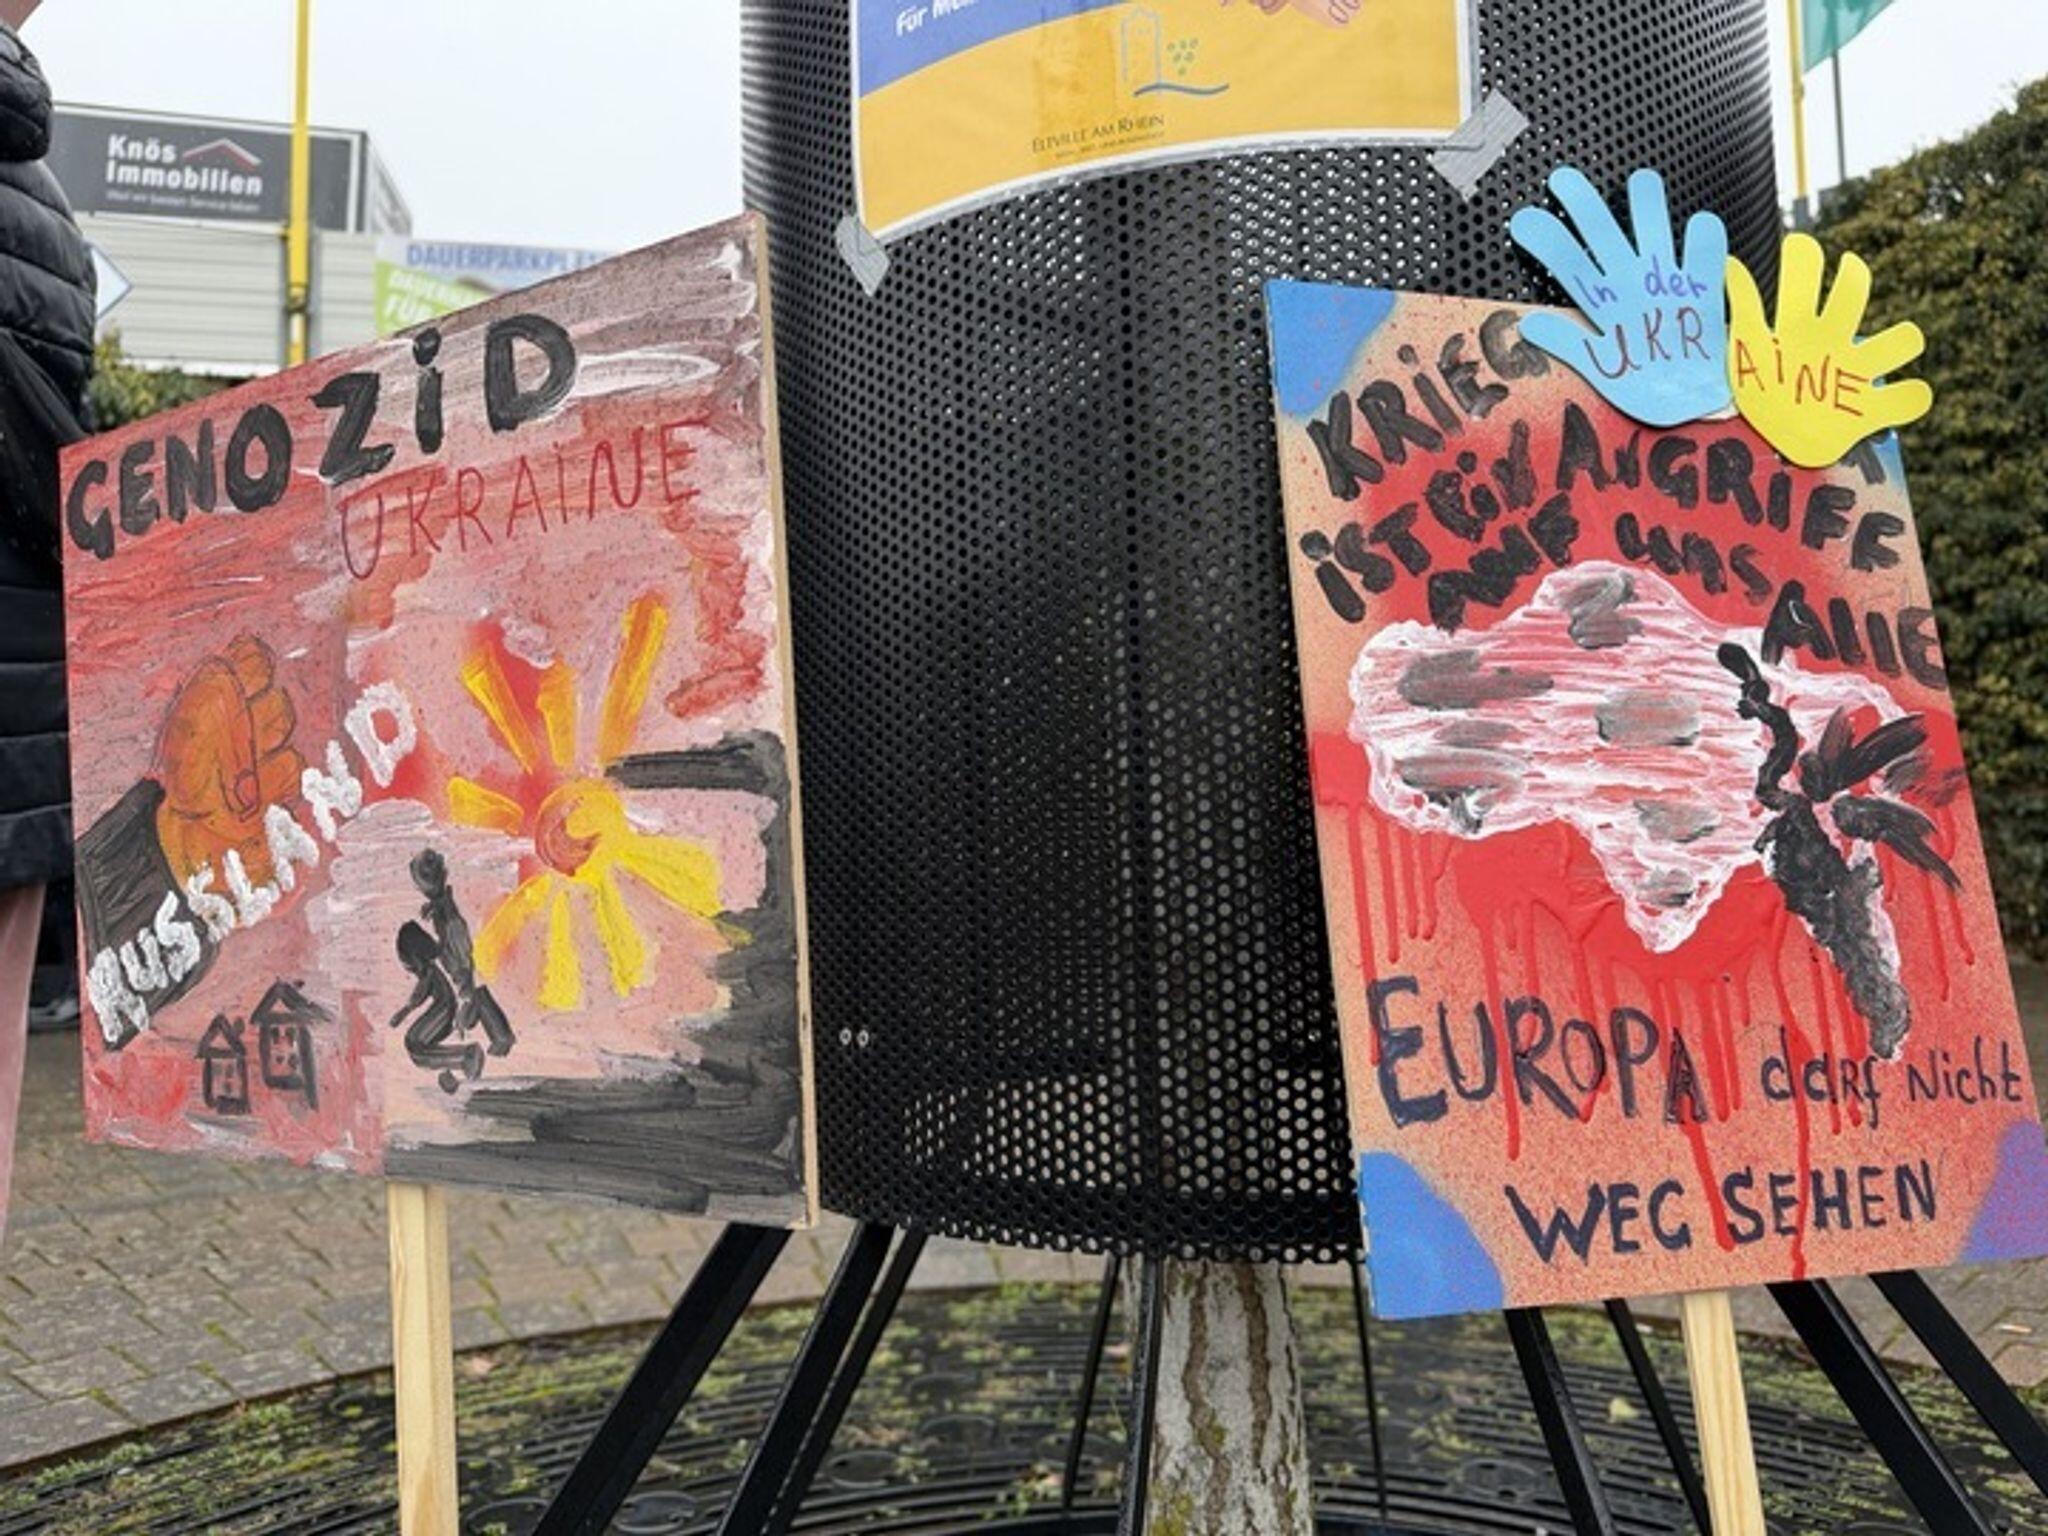 Für
ELTVILLE AM RHEIN
Knös
Immobilien
DAUERPARKPL
FÜR
GENOZiD
UKRAiNE
RUSSLAND
In der
UKRAiNE
KRiEG
iST EiN ANGRiFF
AUF UNS
ALLE
EUROPA darf Nicht
WEG SEHEN